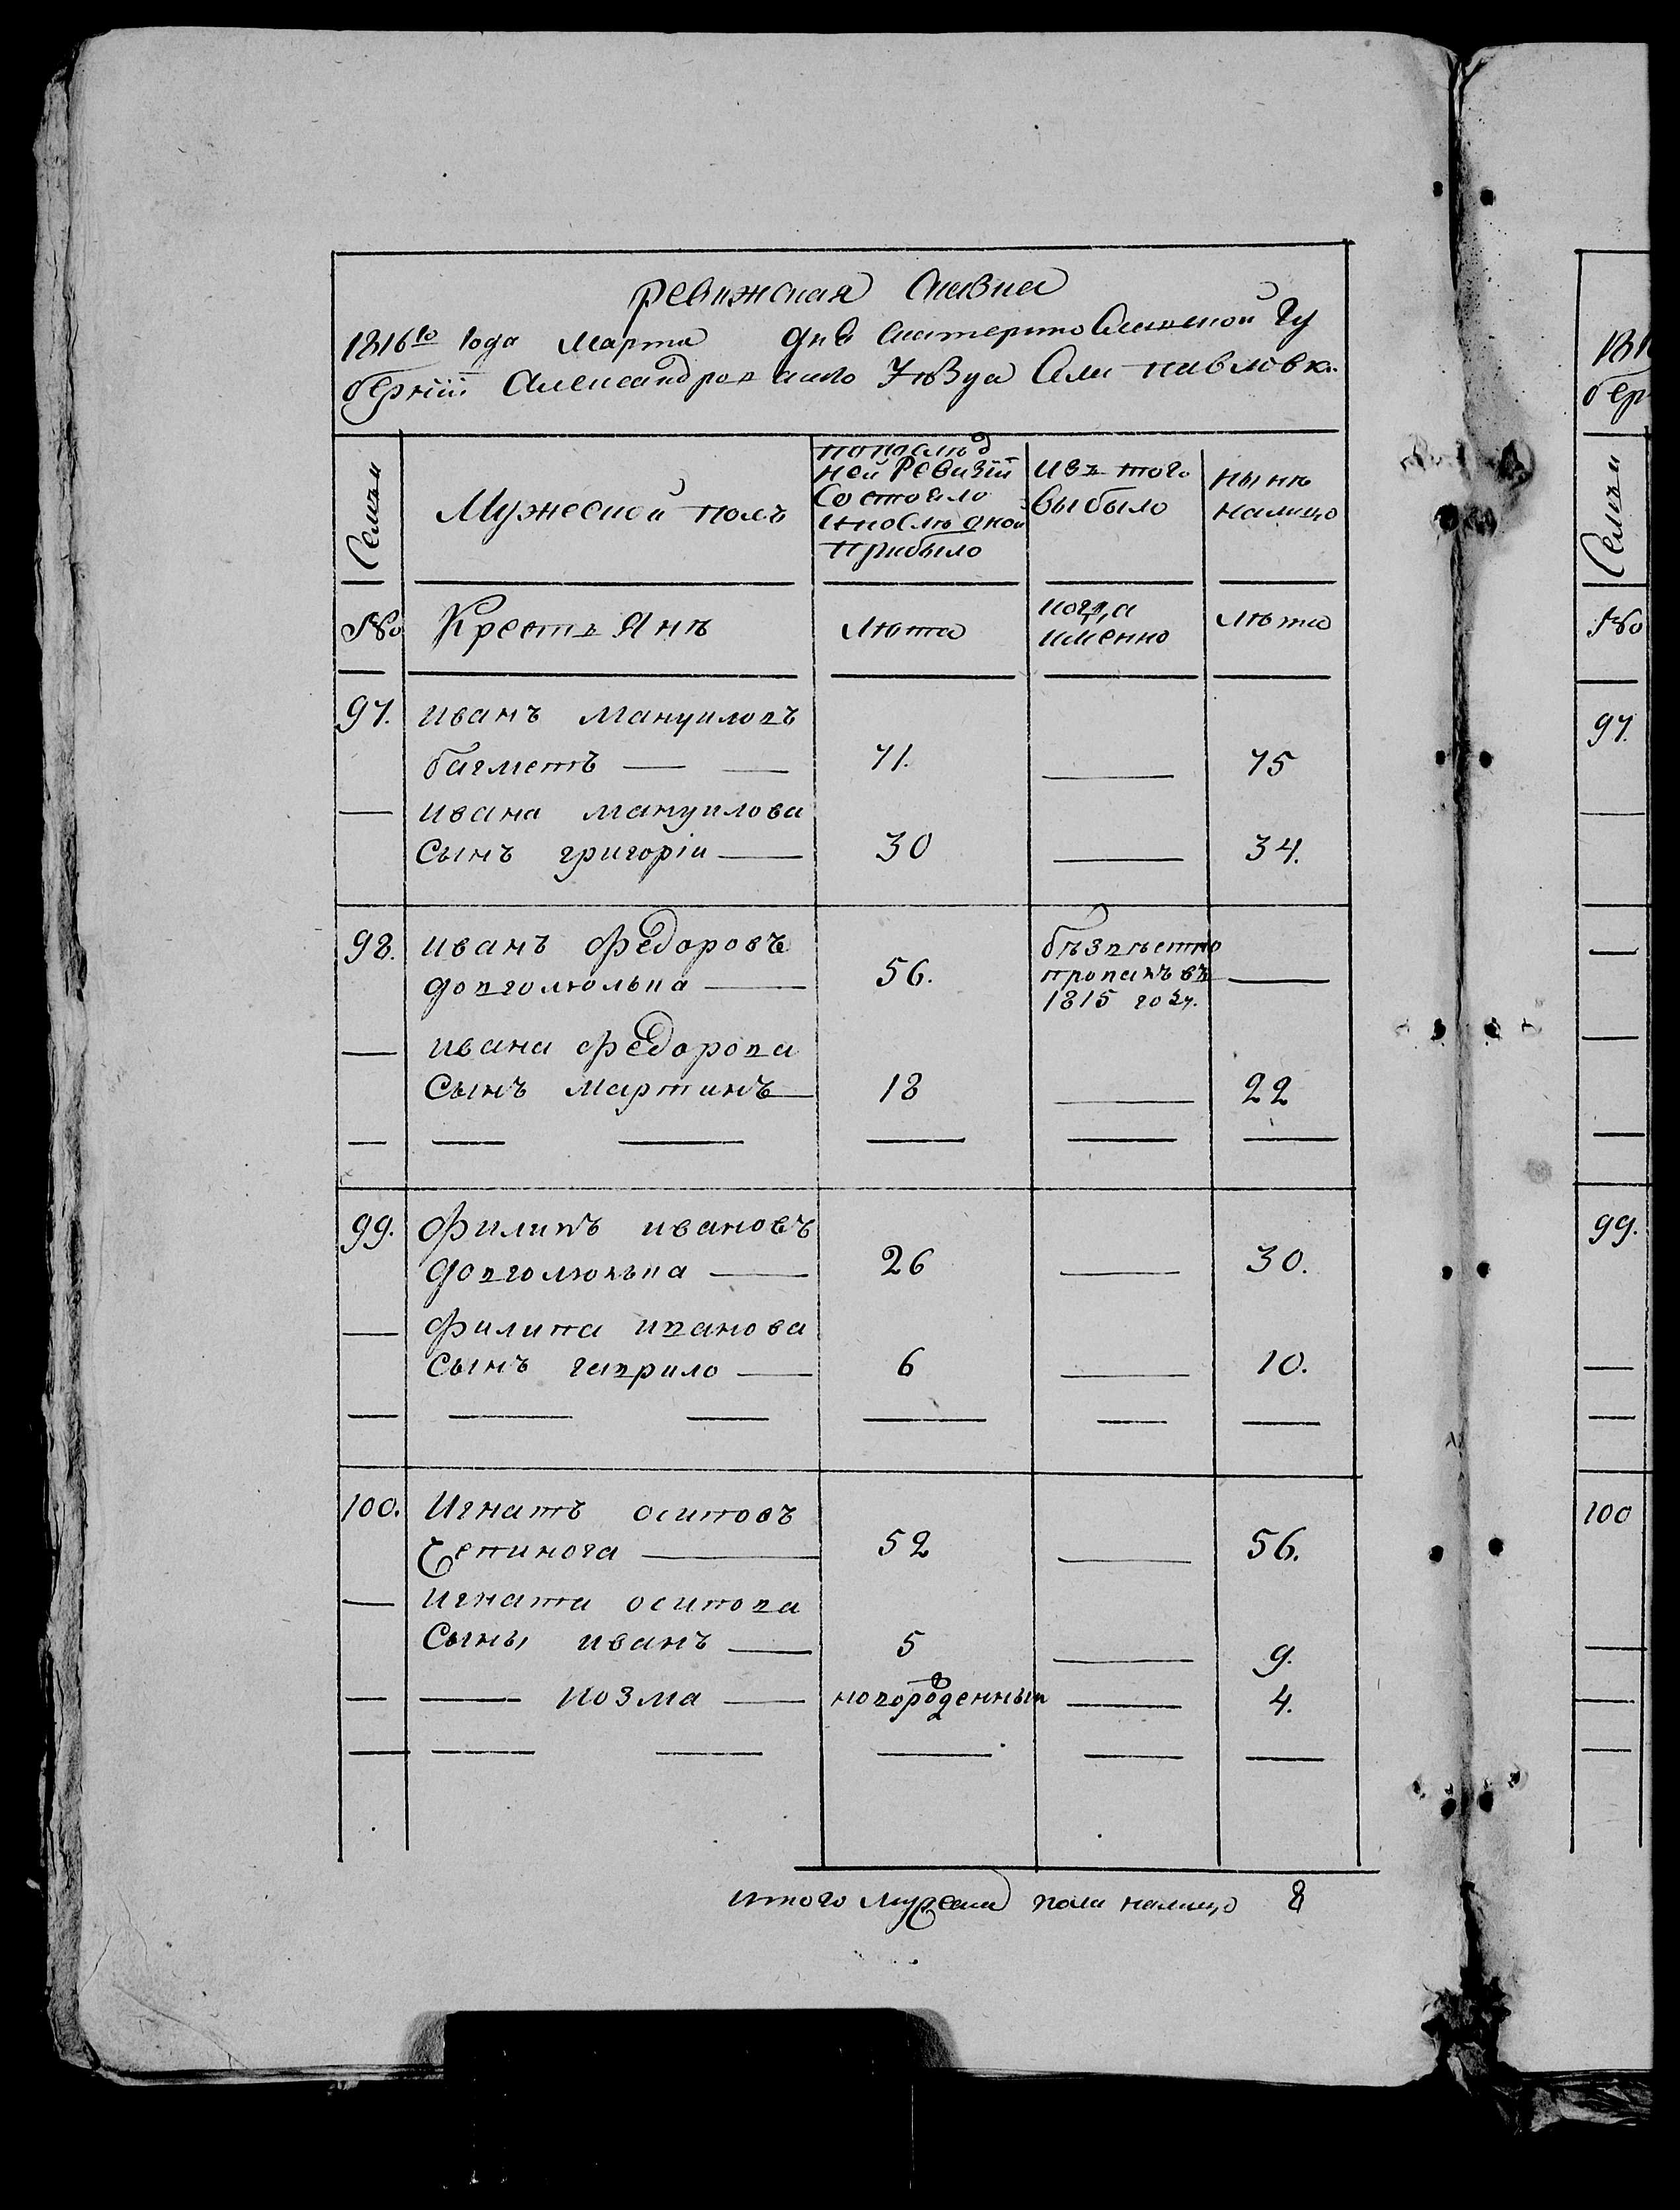 ревижская сказка
1816го года марта дня екатеринославской гу
берніи александровскаго уѣзда села павловка
Семьи
Мужеской полъ
попослѣд
ней Ревизіи
состояло
ипослѣ оной
прибыло
изъ того
выбыло
нынѣ
налицо
№
Крестьянѣ
лѣта
когда
именно
лѣта
97. иванъ мануиловъ
багметъ — — 71. — 75
— ивана мануилова
сынъ григоріи — 30 — 34.
98. иванъ федоровъ
долголюлька — 56. безвѣстно пропалъ въ 1815 году. —
— ивана федорова
сынъ мартинъ — 18 — 22
— — — — — —
99. филипъ ивановъ
долголюлька — 26 — 30.
— филипа иванова
сынъ гаврило — 6 — 10.
— — — — — —
100. Игнатъ осиповъ
чепинога — 52 — 56.
— игната осипова
сыны иванъ — 5 — 9.
— — козма — новорожденный — 4.
— — — — — —
итого мужеска пола налицо 8
181
бер
Семьи
№
97.
—
—
—
—
99.
—
—
100
—
—
—